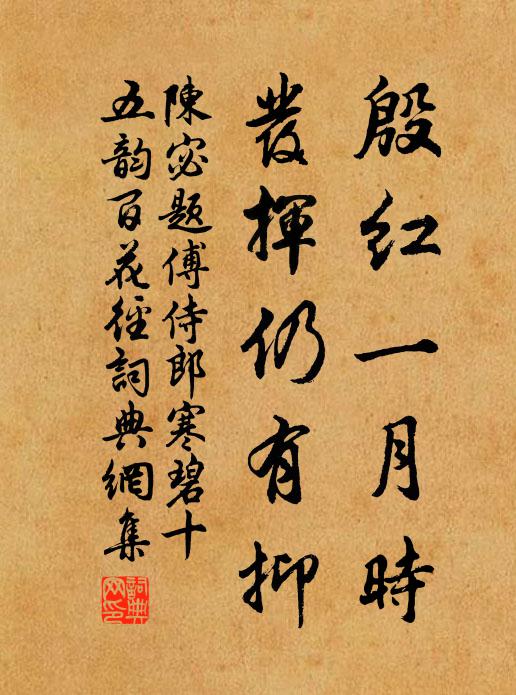 殷紅一月時
發揮仍有抑
陳宓題傅侍郎寒碧十
五韵百花徑詞典網集
詞典网印